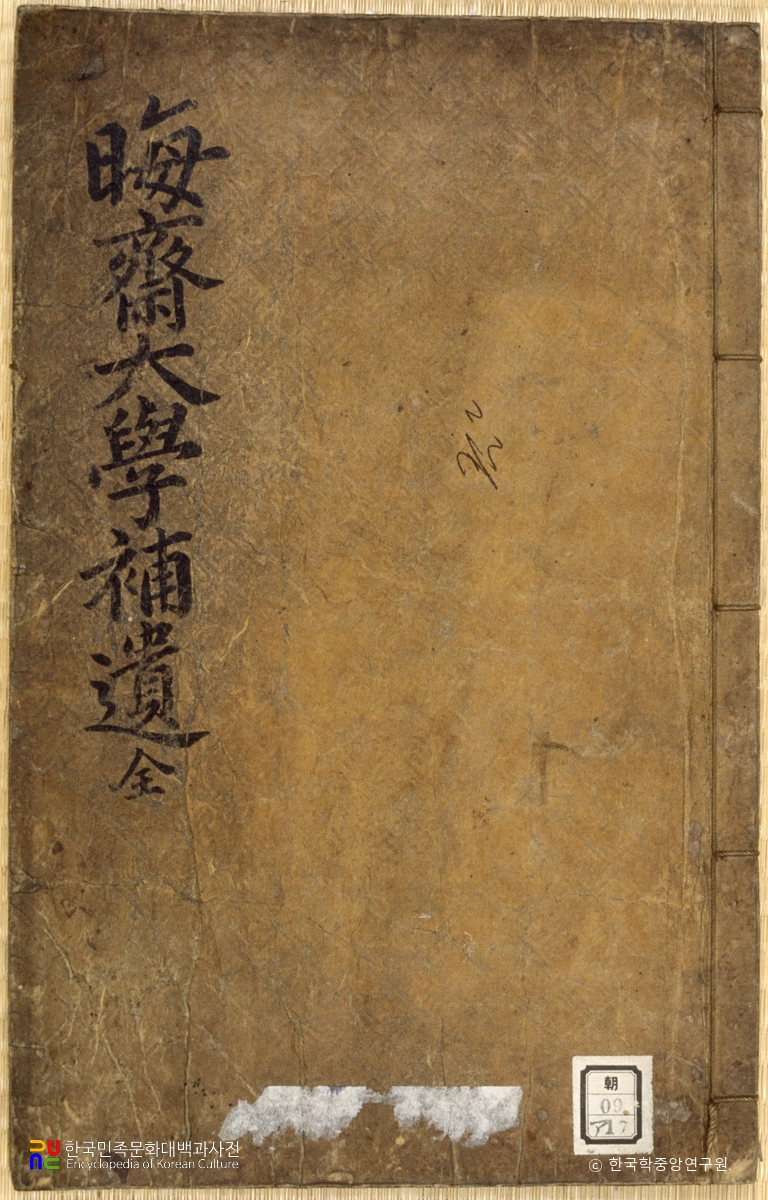 晦齋大學補遺 全
朝
09
한국민족문화대백과사전
Encyclopedia of Korean Culture
© 한국학중앙연구원